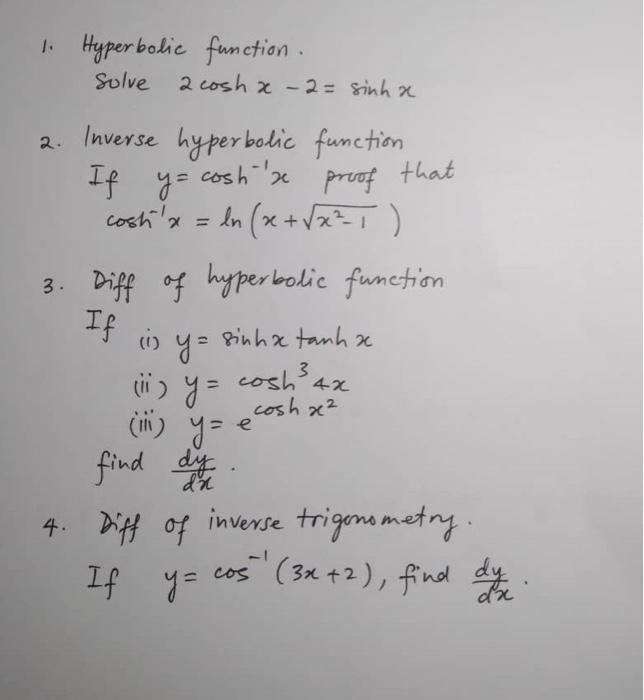 1. Hyperbolic function.
Solve 2 cosh x - 2 = sinh x
2. Inverse hyperbolic function
If y = cosh⁻¹x proof that
cosh⁻¹x = ln (x + √x²-1 )
3. Diff of hyperbolic function
If (i) y = sinhx tanh x
(ii) y = cosh³ 4x
(iii) y = e^cosh x²
find dy/dx .
4. Diff of inverse trigonometry.
If y = cos⁻¹ (3x +2), find dy/dx .